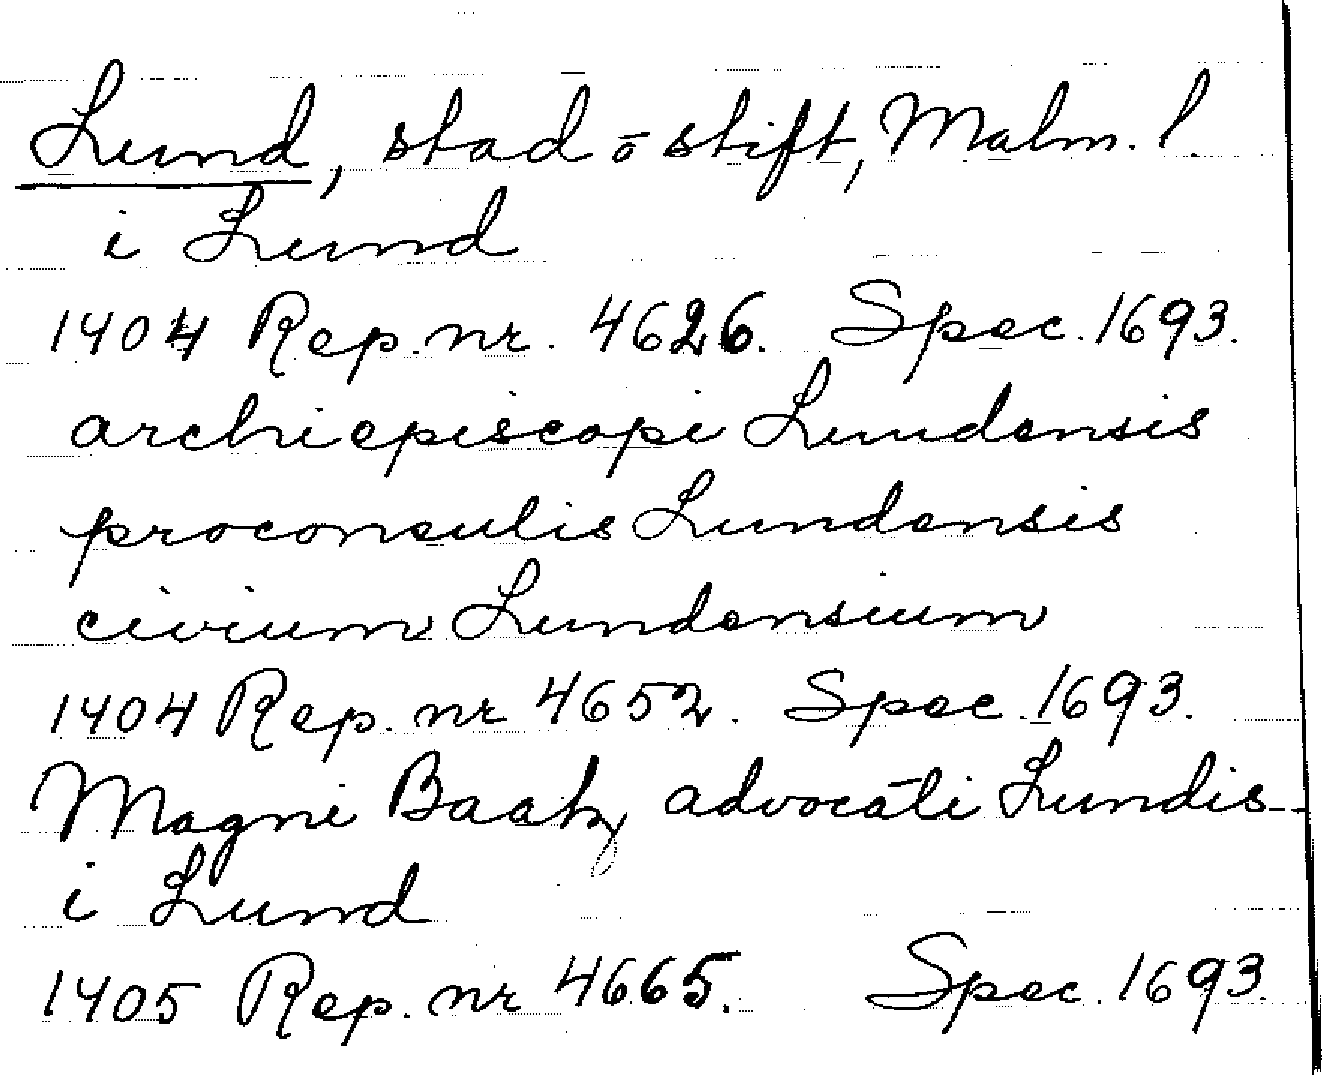 Lund, stad o stift, Malm. l.
i Lund
1404 Rep. nr. 4626. Spec. 1693.
archiepiscopi Lundensis
proconsulis Lundensis
civium Lundensium
1404 Rep. nr 4652. Spec. 1693.
Magni Baatz advocati Lundis
i Lund
1405 Rep. nr 4665. Spec. 1693.